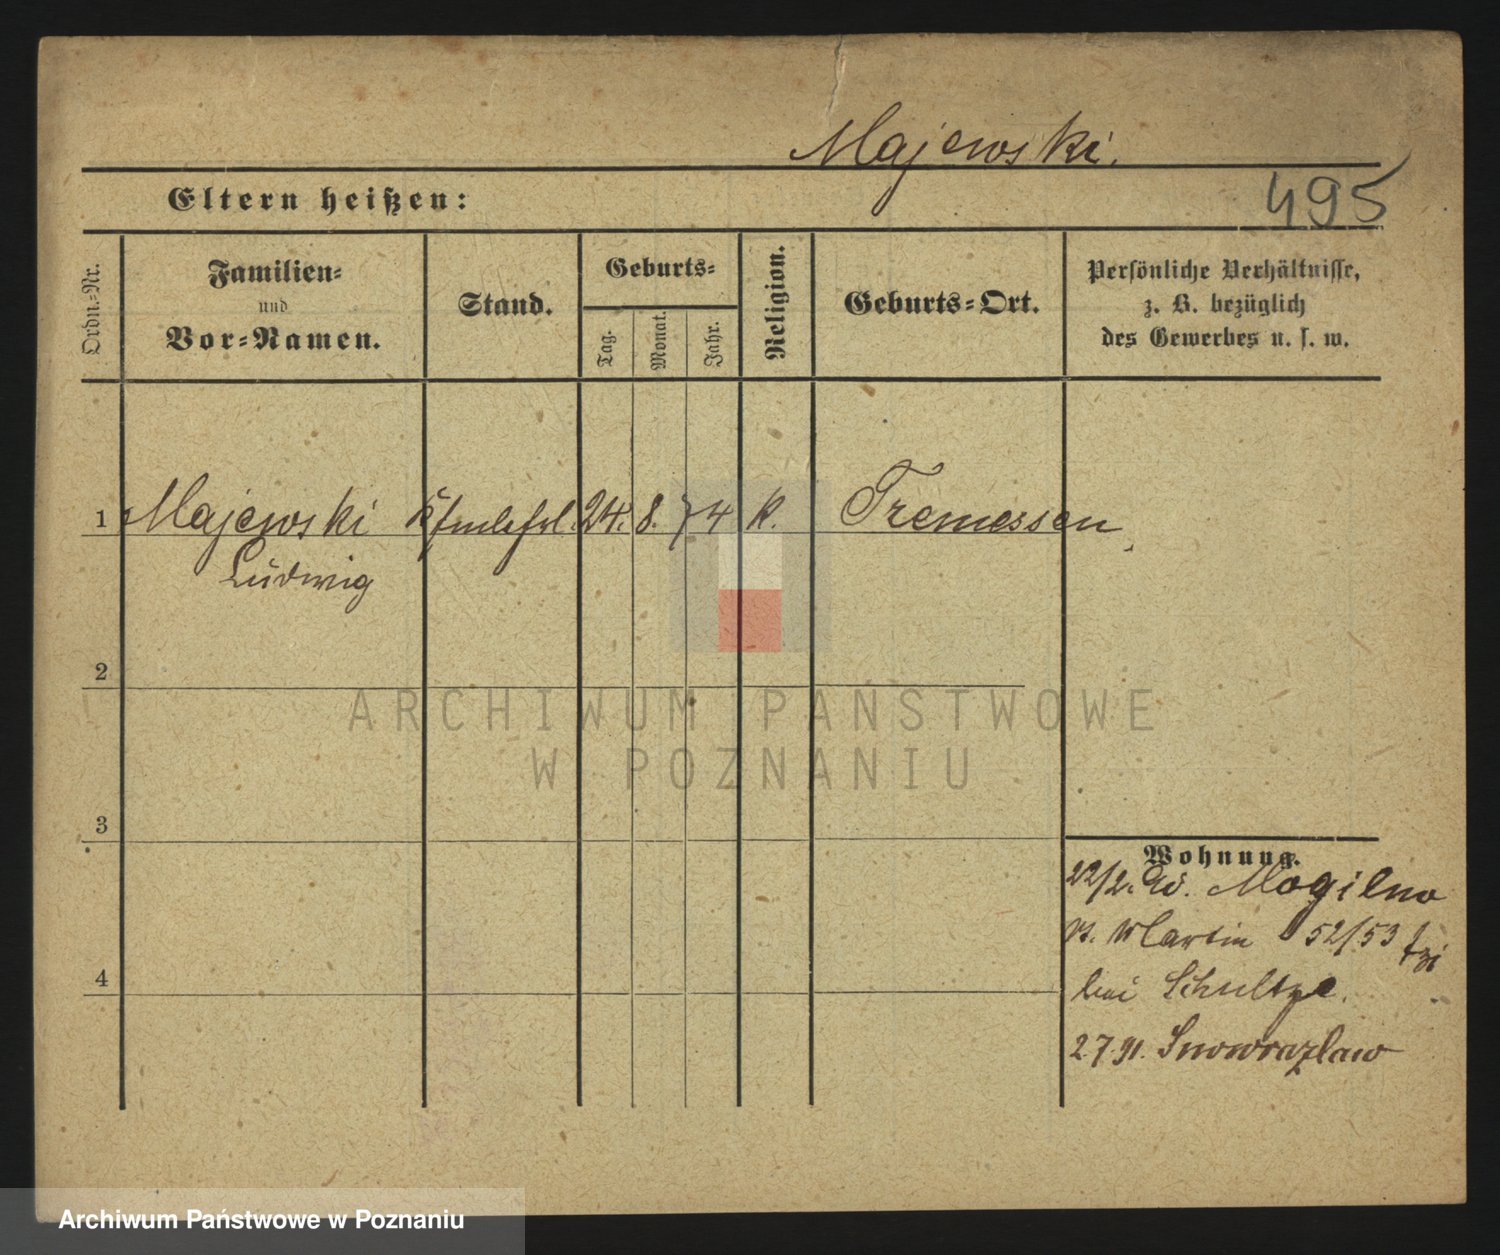 Majewski.
Eltern heißen:
495
Ordn.-Nr.
Familien-
und
Vor-Namen.
Stand.
Geburts-
Tag.
Monat.
Jahr.
Religion.
Geburts-Ort.
Persönliche Verhältnisse,
z. B. bezüglich
des Gewerbes u. s. w.
1 Majewski 24. 8. 74 k. Tremessen
Ludwig
2
ARCHIWUM PAŃSTWOWE
W POZNANIU
3
Wohnung.
22/2. Mogilno
St. Martin 52/53
4
bei Schultze.
2.7.91. Inowrazlaw
Archiwum Państwowe w Poznaniu